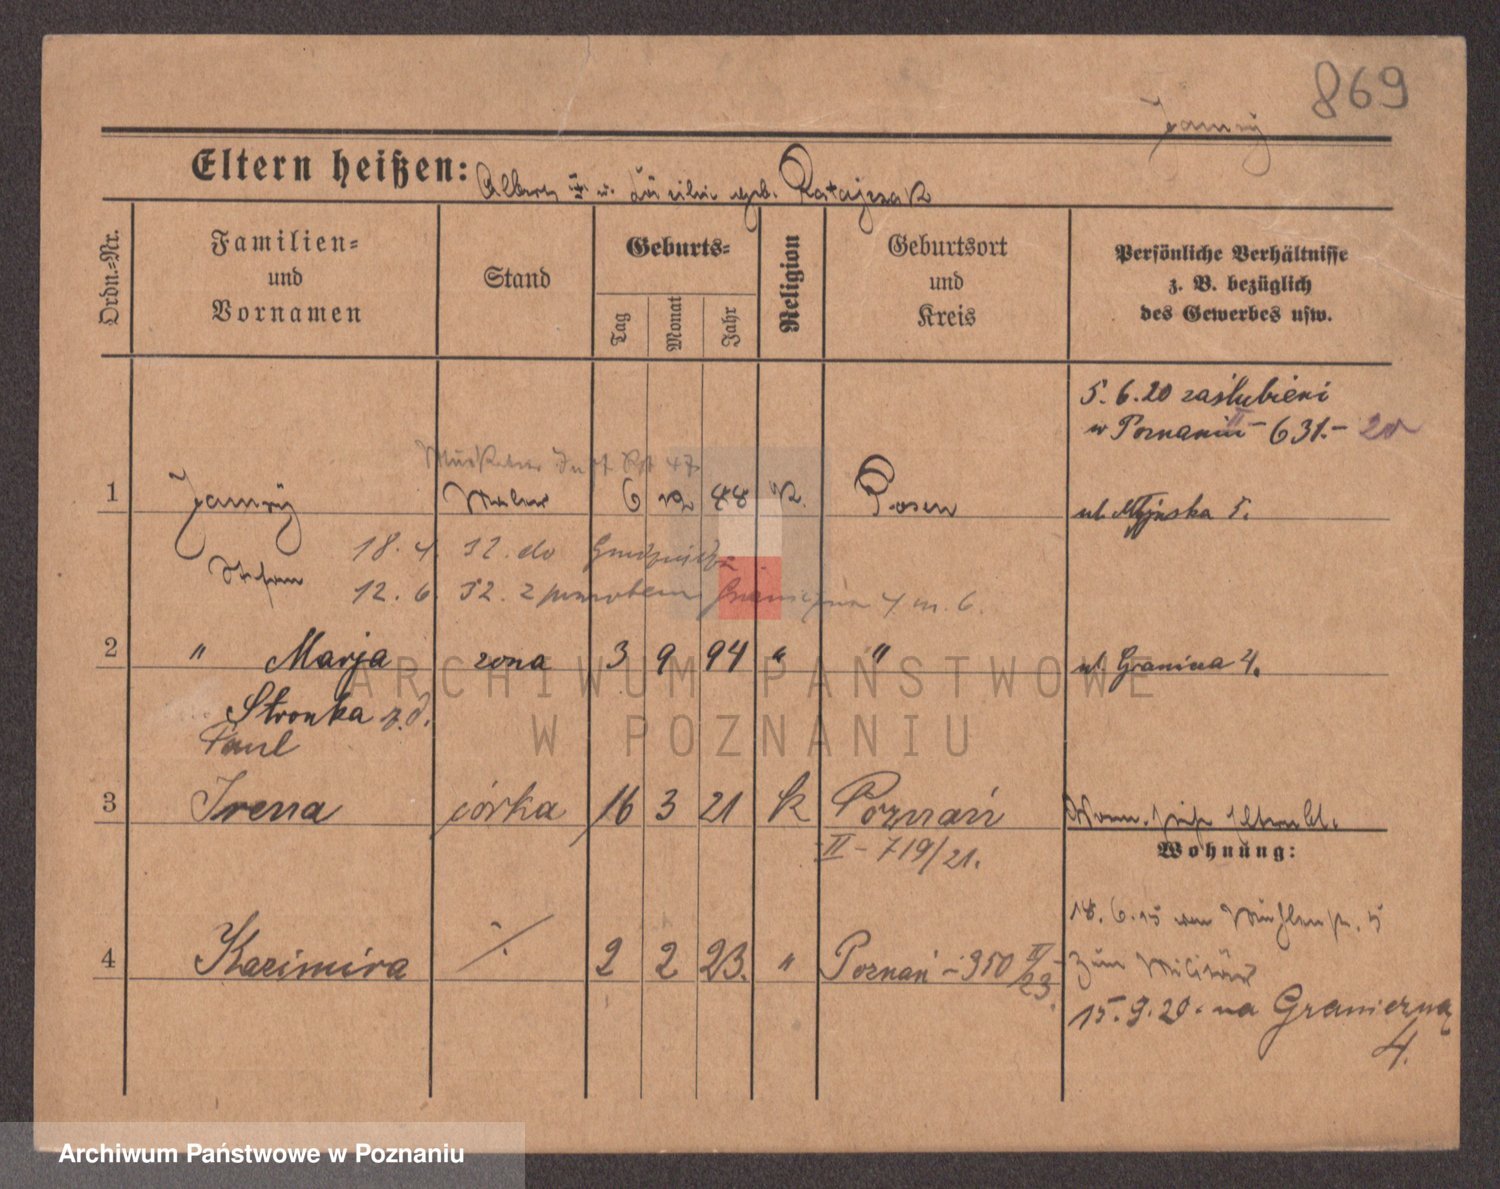 869
Jamry
Eltern heißen: Albert u. geb. Ratajczak
Ordn.=Nr.
Familien=
und
Vornamen
Stand
Geburts=
Tag
Monat
Jahr
Religion
Geburtsort
und
Kreis
Persönliche Verhältnisse
z. B. bezüglich
des Gewerbes usw.
5.6.20 zaślubieni
w Poznaniu II - 631.- 20
1 Jamry Maler 6 12 88 K. Posen
Stefan
18. 4. 32. do
12. 6. 32. z powrotem Graniczna 4 m. 6.
2 " Marja żona 3 9 94 " " ul. Graniczna 4.
Stronka z d.
Paul
3 Irena córka 16 3 21 k Poznań
II - 719/21.
Wohnung:
18.6.15 von Mühlenstr. 5
4 Kazimira ·/. 2 2 23. " Poznań - 350 II/23.
zum Militär
15.9.20. na Graniczną
4.
ARCHIWUM PAŃSTWOWE
W POZNANIU
Archiwum Państwowe w Poznaniu